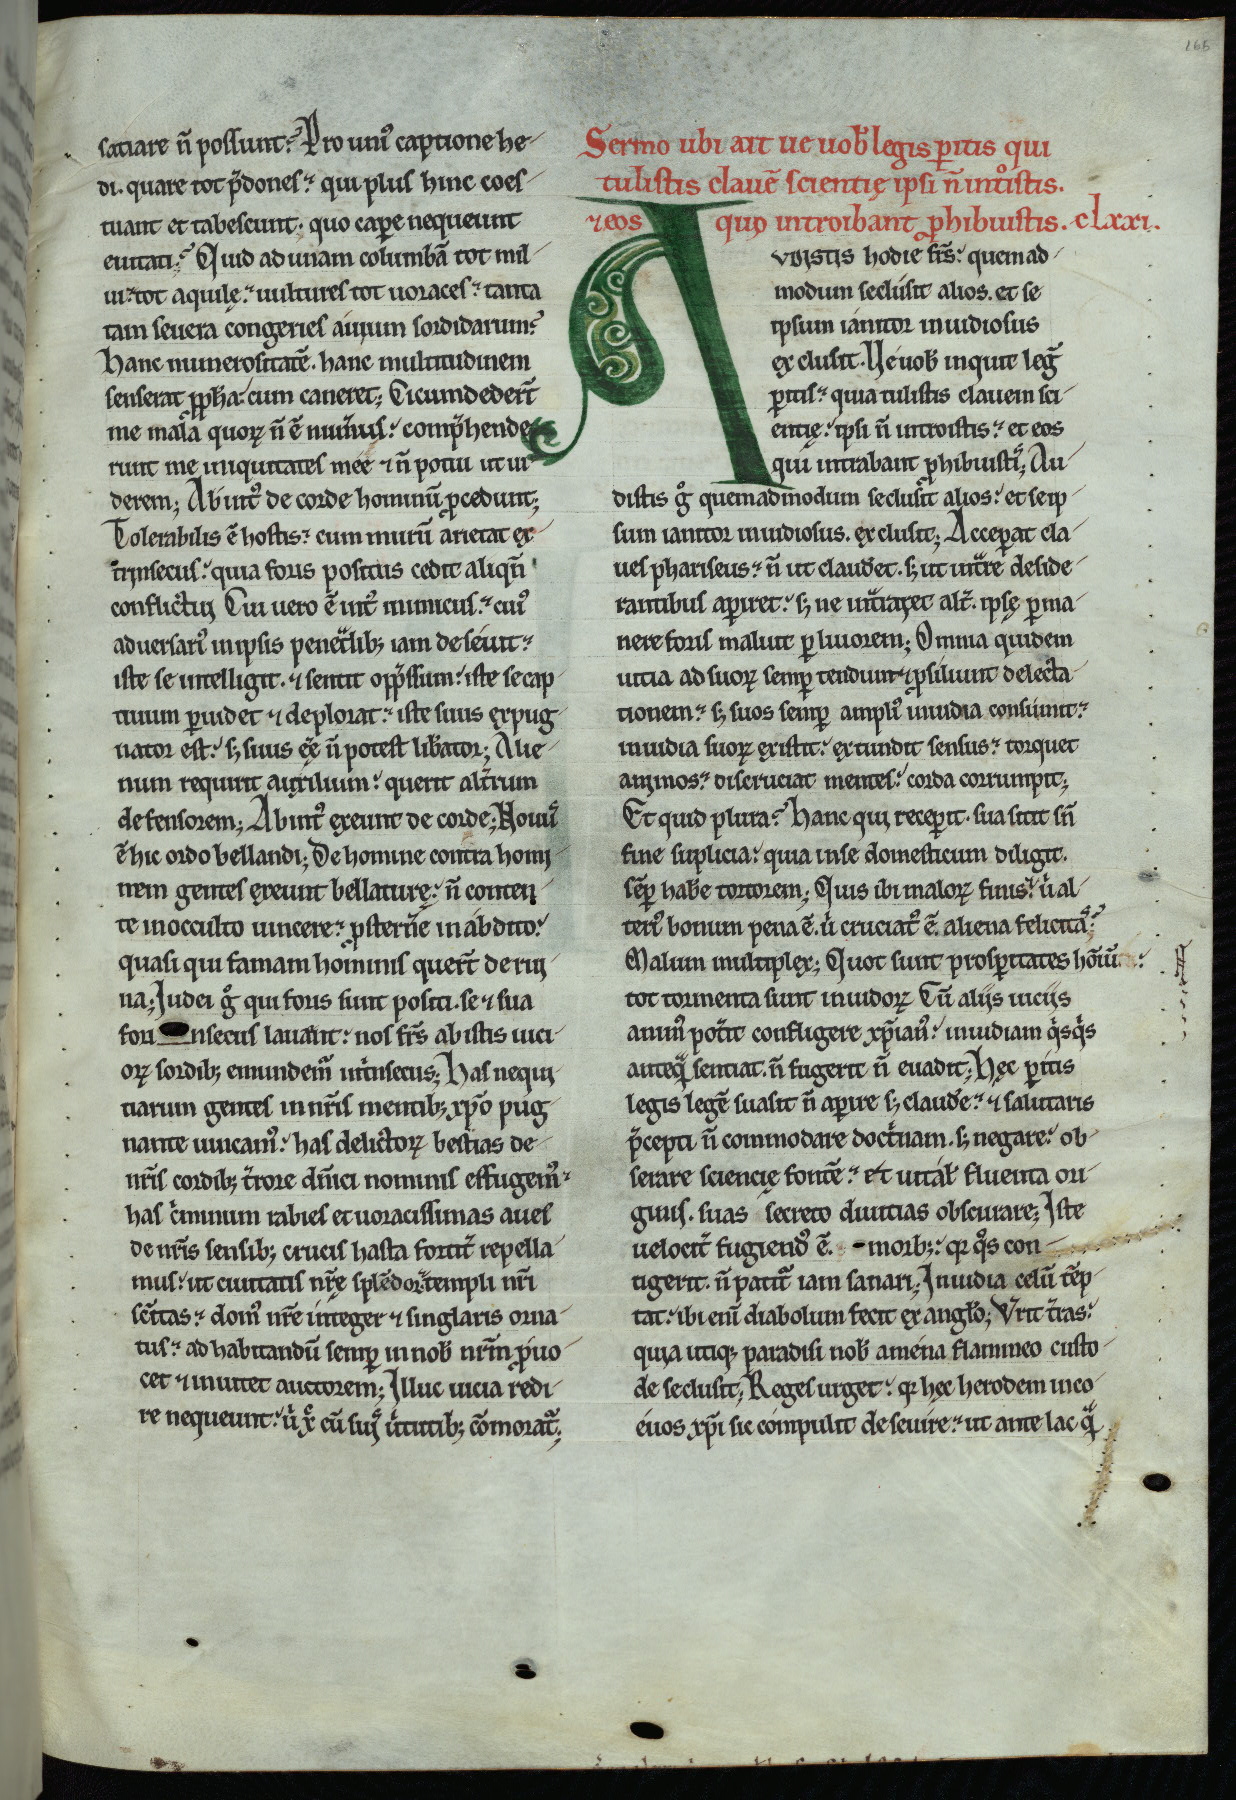 165
satiare n̄ possunt? Pro uni᷒ captione he-
di. quare tot p̄dones? qui plus hinc coes-
tuant et tabescunt. quo cap̲e nequeunt
euitati? Quid ad unam columbā tot mil-
ui? tot aquilę? uultures tot uoraces? tanta
tam seuera congeries auium sordidarum?
Hanc numerositatē. hanc multitudinem
senserat ꝓph̄a cum caneret; Circumdeder̄t
me mala quoꝝ n̄ ē num̄us? comp̄hende-
runt me iniquitates meę ⁊ n̄ potui ut ui-
derem; Ab int᷒ de corde hominū ꝓcedunt;
Tolerabilis ē hostis? cum murū arietat ex-
trinsecus? quia foris positus cedit aliqn̄
conflictui Cui uero ē int᷒ inimicus? cui᷒
aduersari᷒ in ipsis penet̄lib; iam deseuit?
iste se intelligit. ⁊ sentit opp̄ssum? iste se cap-
tiuum ꝑuidet ⁊ deplorat? iste suus expug-
nator est? s; suus eē n̄ potest lib̄ator; Alie-
num requirit auxilium? querit alt̄rum
defensorem; Ab int᷒ exeunt de corde; Nouū
ē hic ordo bellandi; De homine contra homi-
nem gentes exeunt bellaturę? n̄ conten-
te in occulto uincere? ꝓsternēe in abdito?
quasi qui famam hominis quer̄t de rui-
na; Iudei g᷒ qui foris sunt positi. se ⁊ sua
fori nsecus lauant? nos fr̄s ab istis uici-
oꝝ sordib; emundem᷒ int̄nsecus; Has nequi-
tiarum gentes in nr̄is mentib; xp̄o pug-
nante uincam᷒? has delictoꝝ bestias de
nr̄is cordib; t̄rore dn̄ici nominis effugem᷒?
has c̄minum rabies et uoracissimas aues
de nr̄is sensib; crucis hasta fortit̄ repella-
mus? ut ciuitatis nr̄ę splēdor? templi nr̄i
sc̄itas? dom᷒ nr̄ę integer ⁊ singlaris orna-
tus? ad habitandū semꝑ in nob̄ nr̄m ꝓuo-
cet ⁊ inuitet auctorem; Illuc uicia redi-
re nequeunt? u᷒ x̄ cū suis u̇tutib; cōmorat᷒;
Sermo ubi ait ue uob̄ legis ꝑitis qui
tulistis clauē scientię ipsi n̄ int᷒istis.
⁊ eos quo introibant ꝓhibuistis. clxxi.
AVDISTIS hodie fr̄s? quemad-
modum seclusit alios. et se
ipsum ianitor inuidiosus
exclusit. Ue uob̄ inquit leg̅
ꝑitis? quia tulistis clauem sci-
entię? ipsi n̄ introistis? et eos
qui intrabant ꝓhibuisti᷒; Au-
distis g᷒ quemadmodum seclusit alios? et seip-
sum ianitor inuidiosus. exclusit; Acceperat cla-
ues phariseus? n̄ ut clauderet. s; ut int̄re deside-
rantibus aperiret? s; ne int̄raret alt̄. ipse ꝑma-
nere foris maluit ꝑ liuorem; Omnia quidem
uitia ad suoꝝ semꝑ tendunt ⁊ ꝓsiliunt delecta-
tionem? s; suos semꝑ ampli᷒ inuidia consumit?
inuidia suoꝝ existit? extundit sensus? torquet
animos? discruciat mentes? corda corrumpit;
Et quid plura? Hanc qui recepit. sua sitit sn̄
fine suplicia? quia in se domesticum diligit.
sēꝑ habere tortorem; Quis ibi maloꝝ finis? u̇ al-
teri᷒ bonum pena ē. u̇ cruciat᷒ ē. aliena felicita᷒?
Malum multiplex; Quot sunt prosꝑitates hōiū?
tot tormenta sunt inuidoꝝ Cū aliis uiciis
anim᷒ pot̄it confligere xp̄ian᷒? inuidiam q̇sq̇s
anteq̄ sentiat. n̄ fugerit n̄ euadit; Hęc ꝑitis
legis legē suasit n̄ aperire s; claudere? ⁊ salutaris
p̄cepti n̄ commodare doct̄nam. s; negare? ob-
serare scientię fontē? et uital̄ fluenta ori-
ginis. suas secreto diuitias obscurare; Iste
uelocit̄ fugiend᷒ ē. morb;? qr q᷒s con-
tigerit. n̄ patit᷒ iam sanari; Inuidia celū tēp-
tat? ibi eni᷒ diabolum fecit ex angl̄o; Vrit t̄ras?
quia utiq; paradisi nob̄ amena flammeo custo-
de seclusit; Reges urget? qr hęc herodem inco-
euos xp̄i sic compulit deseuire? ut ante lac q̄